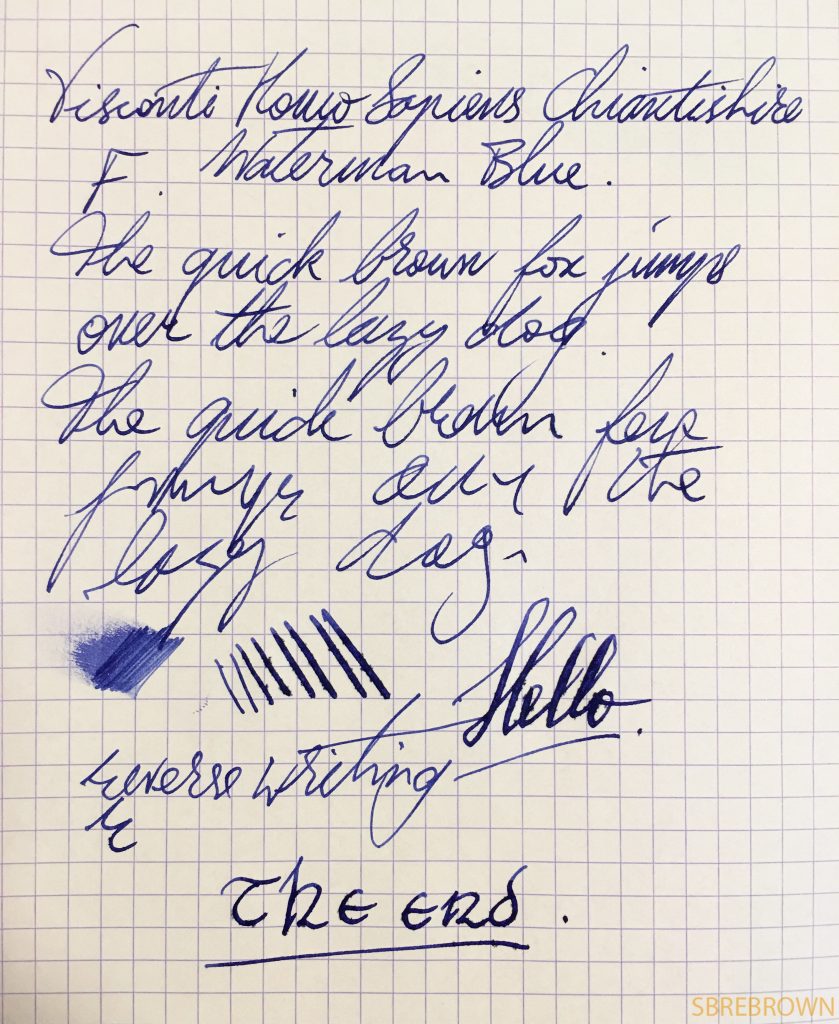 Visconti Homo Sapiens Chiantishire
F. Waterman Blue.
The quick brown fox jumps
over the lazy dog.
The quick brown fox
jumps over the
lazy dog.
Hello.
reverse writing
r
THE END.
SBREBROWN